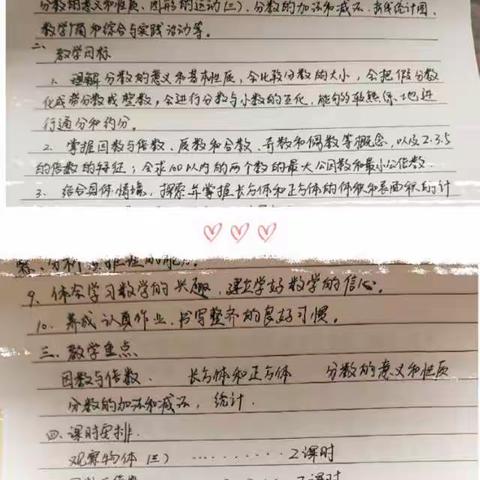 分数的意义和性质、图形的运动(三)、分数的加法和减法、折线统计图、
数学广角和综合与实践活动等。
二、教学目标
1. 理解分数的意义和基本性质,会比较分数的大小,会把假分数
化成带分数或整数,会进行分数与小数的互化,能够较熟练地进
行通分和约分。
2. 掌握因数与倍数、质数和合数、奇数和偶数等概念,以及2.3.5
的倍数的特征;会求100以内的两个数的最大公因数和最小公倍数.
3. 结合具体情境,探索并掌握长方体和正方体的体积和表面积的计
察、分析、推理的能力.
9. 体会学习数学的兴趣,建立学好数学的信心。
10. 养成认真作业、书写整齐的良好习惯。
三、教学重点
因数与倍数、 长方体和正方体 分数的意义和性质
分数的加法和减法, 统计.
四、课时安排.
观察物体(三) ......... 2课时